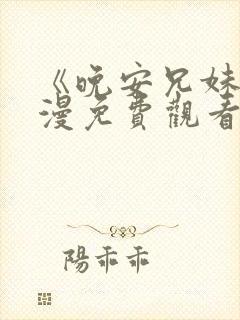 《晚安兄妹
漫免費觀看
陽乖乖